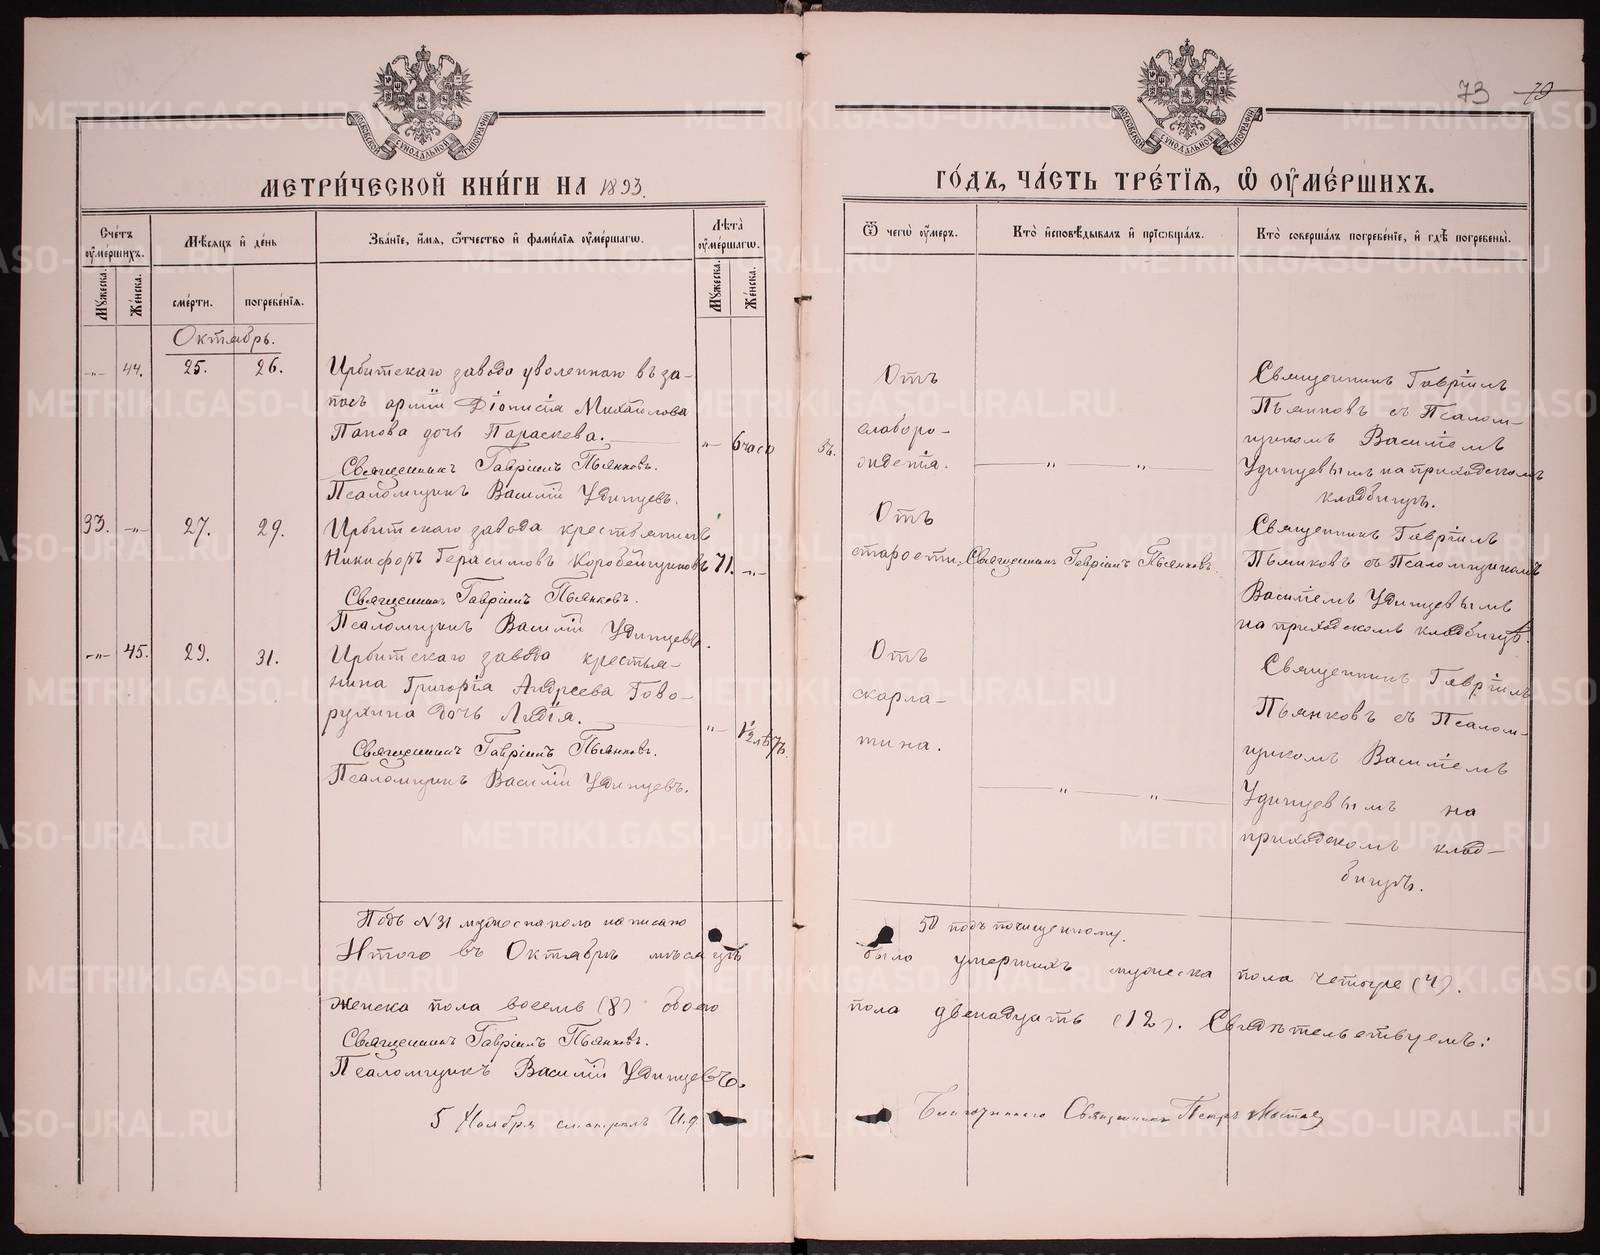 73 73
МОСКОВСКОЙ СѴНОДАЛЬНОЙ ТИПОГРАФИИ
МОСКОВСКОЙ СѴНОДАЛЬНОЙ ТИПОГРАФИИ
МЕТРИ́ЧЕСКОЙ КНИ́ГИ НА 1893.
ГО́ДЪ, ЧА́СТЬ ТРЕ́ТІѦ, Ѡ ОУ҆МЕ́РШИХЪ.
Сче́тъ оу҆ме́ршихъ.
Мѣ́сѧцъ и҆ де́нь
Зва́нїе, и҆́мѧ, ѻ҆́тчество и҆ фами́лїѧ оу҆ме́ршагѡ.
Лѣ́та оу҆ме́ршагѡ.
Мꙋ́жеска.
Же́нска.
сме́рти.
погребе́нїѧ.
Мꙋ́жеска.
Же́нска.
Ѿ чегѡ̀ оу҆́меръ.
Кто̀ и҆сповѣ́дывалъ и҆ прїѻбща́лъ.
Кто̀ соверша́лъ погребе́нїе, и҆ гдѣ̀ погребены̀.
Октябрь.
-„- 44. 25. 26.
Ирбитскаго завода уволеннаго въ за-
пасъ арміи Діонисія Михайлова
Попова дочь Параскева.
Священникъ Гавріилъ Пьянковъ.
Псаломщикъ Василій Удинцевъ.
„- 6 часо въ.
Отъ
слаборо-
жденія.
Священникъ Гавріилъ
Пьянковъ съ Псалом-
щикомъ Василіемъ
Удинцевымъ на приходскомъ
кладбищѣ.
33. -„- 27. 29.
Ирбитскаго завода крестьянинъ
Никифоръ Герасимовъ Коробейщиковъ 71. -„-
Священникъ Гавріилъ Пьянковъ.
Псаломщикъ Василій Удинцевъ.
Отъ
старости.
Священникъ Гавріилъ Пьянковъ.
Священникъ Гавріилъ
Пьянковъ съ Псаломщикомъ
Василіемъ Удинцевымъ
на приходскомъ кладбищѣ.
-„- 45. 29. 31.
Ирбитскаго завода крестья-
нина Григорія Андреева Гово-
рухина дочь Лидія.
Священникъ Гавріилъ Пьянковъ.
Псаломщикъ Василій Удинцевъ.
„- 1½ лѣтъ.
Отъ
скарла-
тина.
Священникъ Гавріилъ
Пьянковъ съ Псалом-
щикомъ Василіемъ
Удинцевымъ на
приходскомъ клад-
бищѣ.
Подъ №31 мужеска пола написано 50 подъ почищенному.
Итого въ Октябрѣ мѣсяцѣ было умершихъ мужеска пола четыре (4).
женска пола восемь (8) обоего пола двенадцать (12). Свидѣтельствуемъ:
Священникъ Гавріилъ Пьянковъ.
Псаломщикъ Василій Удинцевъ.
5 Ноября смотрѣлъ И.д. Благочиннаго Священникъ Петръ
METRIKI.GASO-URAL.RU